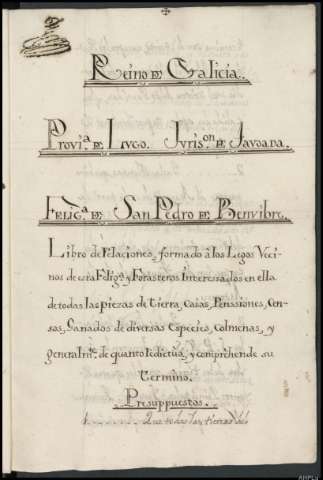 Reino de Galicia.
Provi.ª de Lugo. Juris.on de Tavoana.
Felig.ª de San Pedro de Benvibre.
Libro de Relaciones, formado á los Legos Veci-
nos de esta Felig.ª y Forasteros Interesados en ella
de todas las piezas de Tierra, Casas, Pensiones, Cen-
sos, Ganados de diversas Especies, Colmenas, y
generalm.te de quanto Redictua, y comprehende su
Termino.
Presuppuestos.
1. Que todas las tierras del